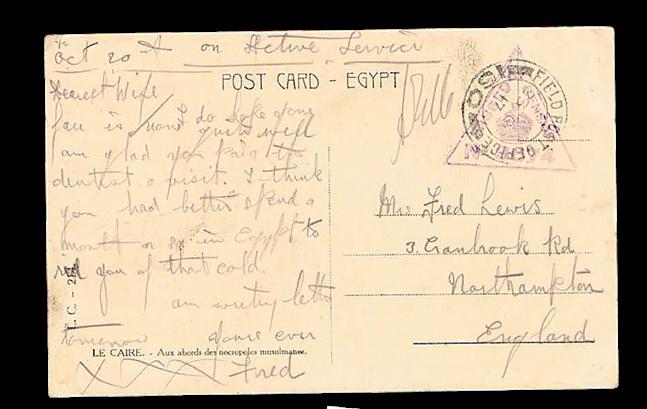 Oct 20
on Active Service
POST CARD - EGYPT
Dearest Wife
do hope your
face is now quite well
am glad you paid the
dentist a visit. I think
you had better spend a
month or so in Egypt to
rid you of that cold.
am writing letter
tomorrow yours ever
Fred
XXX
L. C. - 
LE CAIRE. - Aux abords des necropoles musulmanes.
FIELD POST OFFICE
Mrs Fred Lewis
3. Cranbrook Rd
Northampton
England